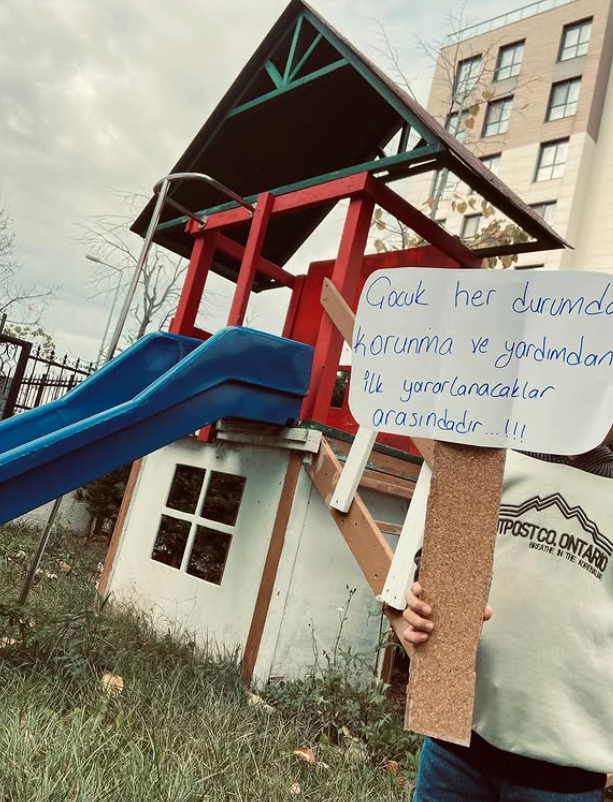 Çocuk her durumda
korunma ve yardımdan
ilk yararlanacaklar
arasındadır...!!!
TPOSTCO. ONTARIO
BREATHE IN THE ADRENALINE